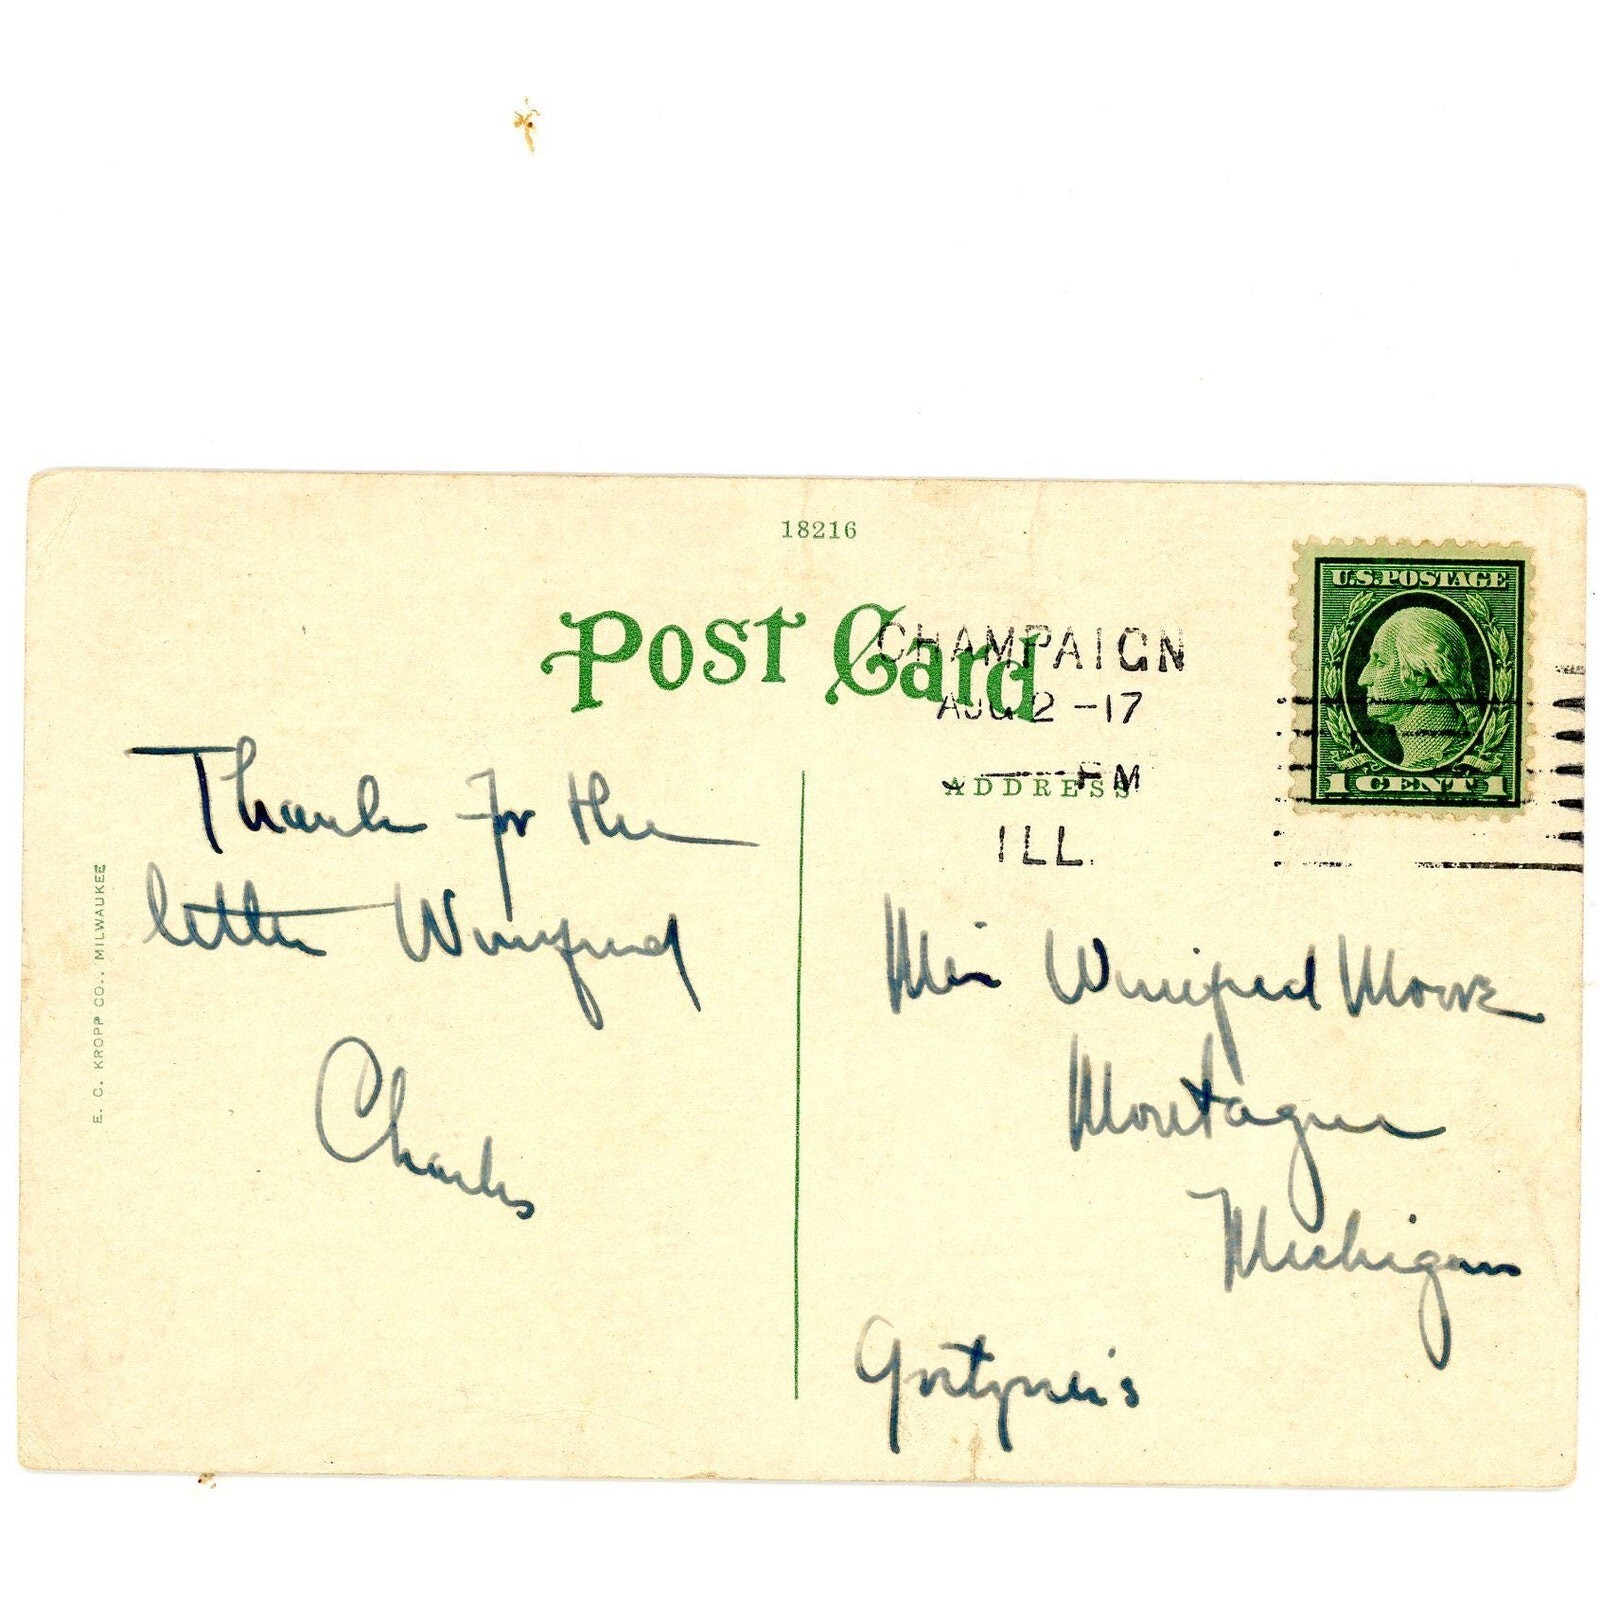 18216
POST CARD
CHAMPAIGN
AUG 2 -17
PM
ADDRESS
ILL.
U.S. POSTAGE
1 CENT 1
Thanks for the
letter Winifred
Charles
Miss Winifred Moore
Montague
Michigan
E. C. KROPP CO., MILWAUKEE